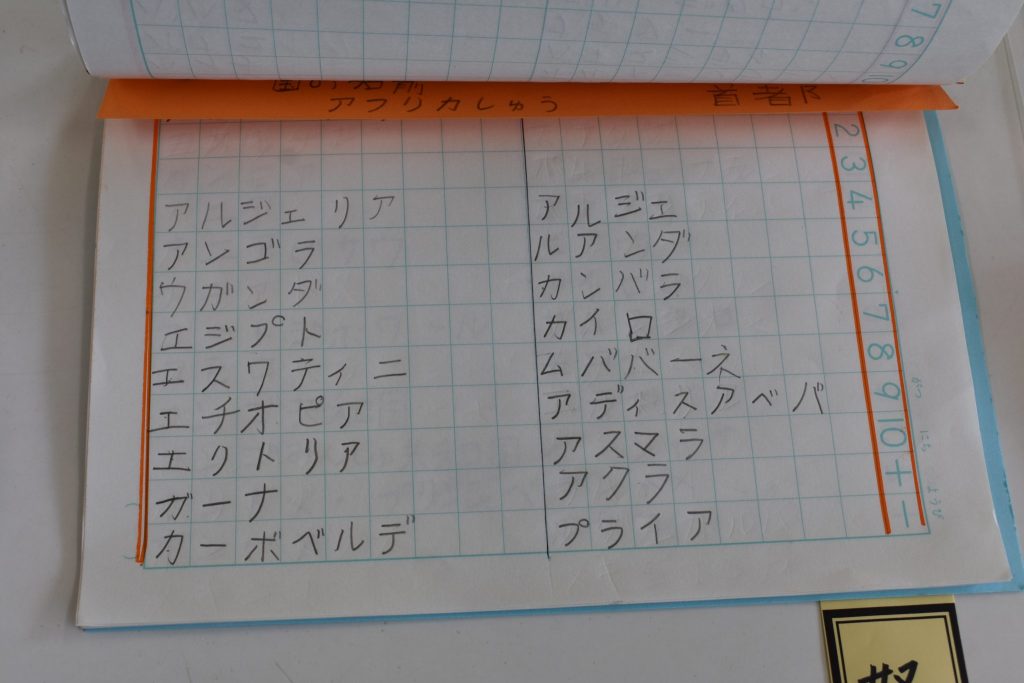 7
8
9
10
国の名前
アフリカしゅう
首者β
2
3
4
5
6
7
8
9
10
十
一
アルジェリア アルジェ
アンゴラ ルアンダ
ウガンダ カンバラ
エジプト カイロ
エスワティニ ムババーネ
エチオピア アディスアベバ
エリトリア アスマラ
ガーナ アクラ
カーボベルデ プライア
がつ
にち
ようび